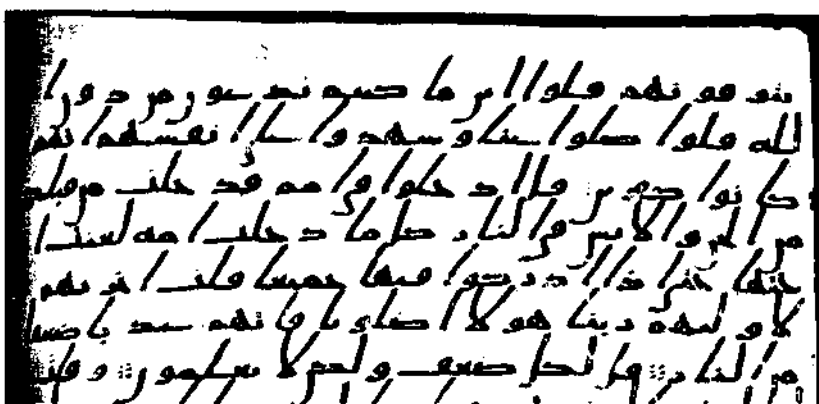 يتوفونهم قلوا اين ما كنتم تدعون من دون ا
لله قلوا ضلوا عنا وشهدوا على انفسهم انهم
كانوا كفرين قل ادخلوا في امم قد خلت من قبلكم
من الجن والانس في النار كلما دخلت امه لعنت ا
ختها حتى اذا اداركوا فيها جميعا قلت اخريهم
لاوليهم ربنا هولا اضلونا فاتهم عذبا ضعفا
من النار قل لكل ضعف ولكن لا تعلمون وقلت